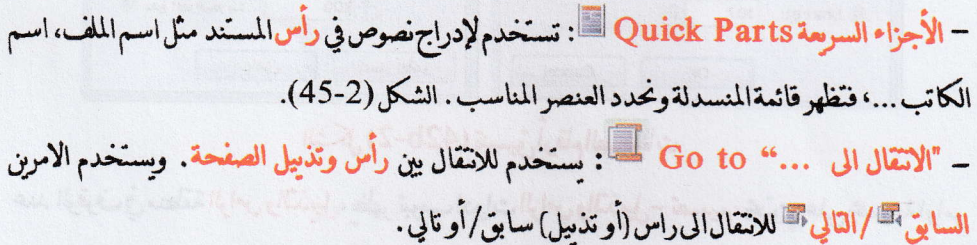 – الأجزاء السريعة Quick Parts : تستخدم لإدراج نصوص في رأس المستند مثل اسم الملف، اسم
الكاتب ...، فتظهر قائمة المنسدلة ونحدد العنصر المناسب . الشكل (2-45).
– "الانتقال الى ...“ Go to : يستخدم للانتقال بين رأس وتذييل الصفحة. ويستخدم الامرين
السابق / التالي للانتقال الى راس (أو تذييل) سابق/أو تالي .